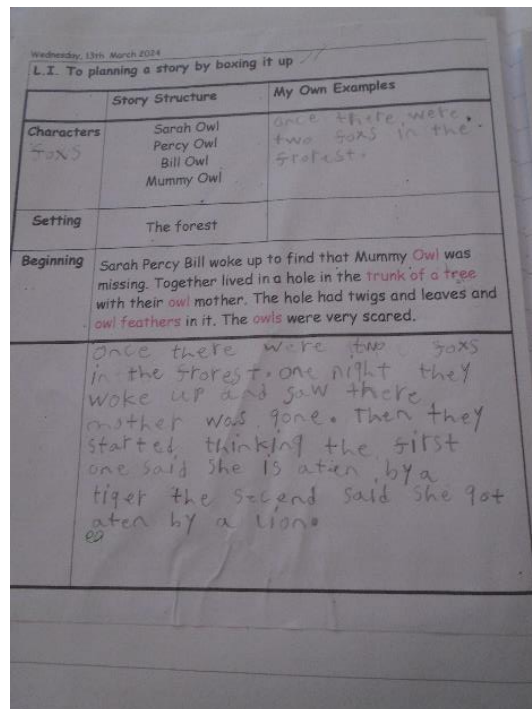 Wednesday, 13th March 2024
L.I. To planning a story by boxing it up
Story Structure
My Own Examples
Characters
foxs
Sarah Owl
Percy Owl
Bill Owl
Mummy Owl
once there were
two foxs in the
frorest.
Setting
The forest
Beginning
Sarah Percy Bill woke up to find that Mummy Owl was
missing. Together lived in a hole in the trunk of a tree
with their owl mother. The hole had twigs and leaves and
owl feathers in it. The owls were very scared.
Once there were two foxs
in the frorest. one night they
woke up and saw there
mother was gone. Then they
started thinking the first
one said she is atien by a
tiger the secend said she got
aten by a lion.